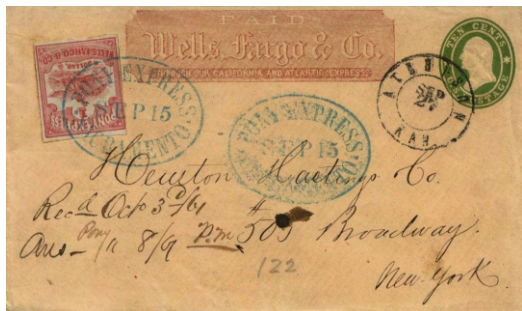 PAID
Wells, Fargo & Co.
THROUGH OUR CALIFORNIA AND ATLANTIC EXPRESS
TEN CENTS
U.S. POSTAGE
PONY EXPRESS
WELLS FARGO & CO
PONY EXPRESS
SEP 15
SACRAMENTO
PONY EXPRESS
SEP 15
SACRAMENTO
ATCHISON
SEP
KAN.
Hastings Co.
Recd Oct 3d/61
Ans - Pony 8/9 P.M
# 505 Broadway.
122
New-York.